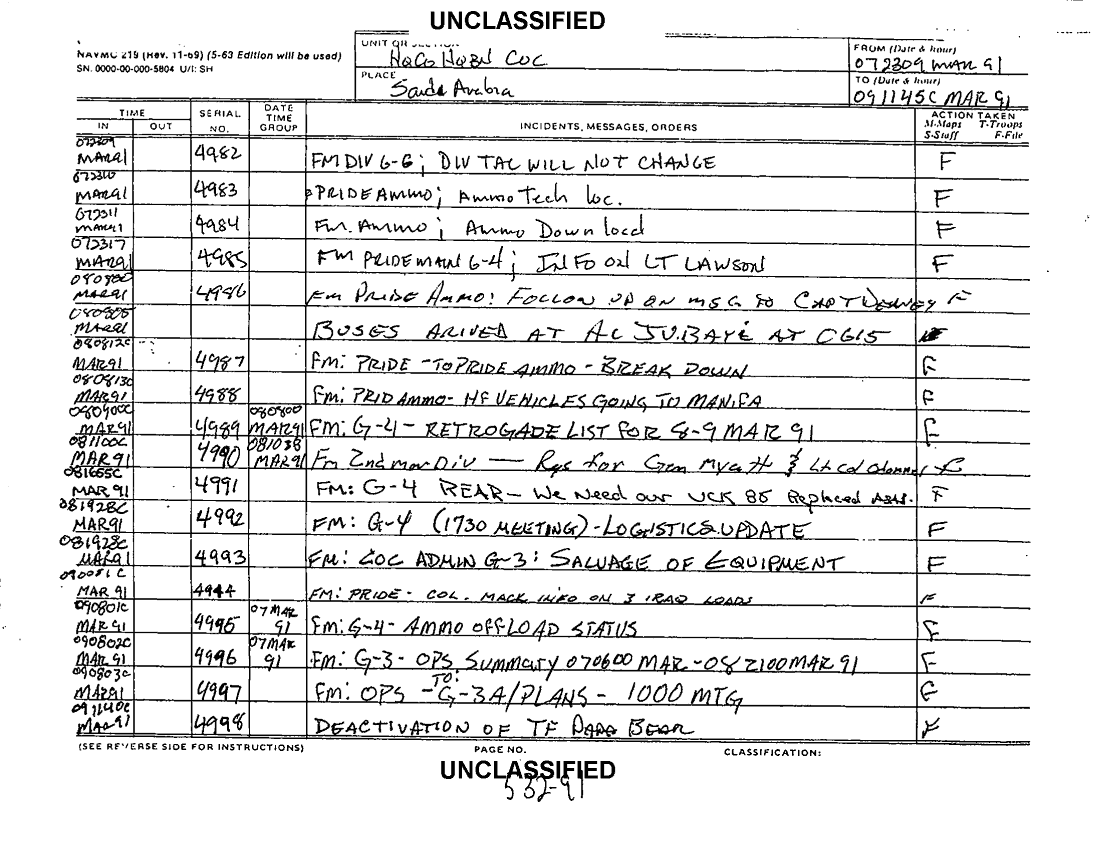 UNCLASSIFIED
NAVMC 219 (Rev. 11-69) (5-63 Edition will be used)
SN. 0000-00-000-5804 U/I: SH
UNIT OR SECTION
HqCo HqBn COC
PLACE
Saudi Arabia
FROM (Date & hour)
072309 MAR 91
TO (Date & hour)
091145C MAR 91
TIME
IN OUT
SERIAL NO.
DATE TIME GROUP
INCIDENTS, MESSAGES, ORDERS
ACTION TAKEN
M-Maps T-Troops
S-Staff F-File
072309 MAR 91 4982 FM DIV G-6; DIV TAC WILL NOT CHANGE F
MAR 91 4983 PRIDE AMMO; Ammo Tech loc. F
072311 MAR 91 4984 Fm. Ammo; Ammo Down load F
072317 MAR 91 4985 FM PRIDE MAIN G-4; INFO ON LT LAWSON F
MAR 91 4986 Fm PRIDE AMMO: FOLLOW UP ON MSG TO CAPT DEWEY F
MAR 91 BUSES ARIVED AT AL JUBAYE AT 0615
080812C MAR 91 4987 Fm: PRIDE - TO PRIDE AMMO - BREAK DOWN F
080813C MAR 91 4988 Fm: PRID AMMO- HF VEHICLES GOING TO MANIFA F
080900C MAR 91 4989 080800 MAR 91 Fm: G-4- RETROGADE LIST FOR 8-9 MAR 91 F
081100C MAR 91 4990 081038 MAR 91 Fm 2nd mar Div — Rgs for Gen Myatt & Lt Col F
081655C MAR 91 4991 FM: G-4 REAR- We Need our UCK 88 Replaced ASAP. F
081928C MAR 91 4992 FM: G-4 (1730 MEETING)-LOGISTICS UPDATE F
081928C MAR 91 4993 FM: COC ADMIN G-3: SALVAGE OF EQUIPMENT F
MAR 91 4944 FM: PRIDE- COL. MACK INFO ON 3 IRAQ LOADS F
090801C MAR 91 4995 07 MAR 91 Fm: G-4- AMMO OFFLOAD STATUS F
090802C MAR 91 4996 07 MAR 91 Fm: G-3- OPS Summary 070600 MAR-082100 MAR 91 F
090803C MAR 91 4997 Fm: OPS - TO: G-3A/PLANS- 1000 MTG F
091140C MAR 91 4998 DEACTIVATION OF TF PAPA BEAR F
(SEE REVERSE SIDE FOR INSTRUCTIONS) PAGE NO. CLASSIFICATION:
UNCLASSIFIED
532-91